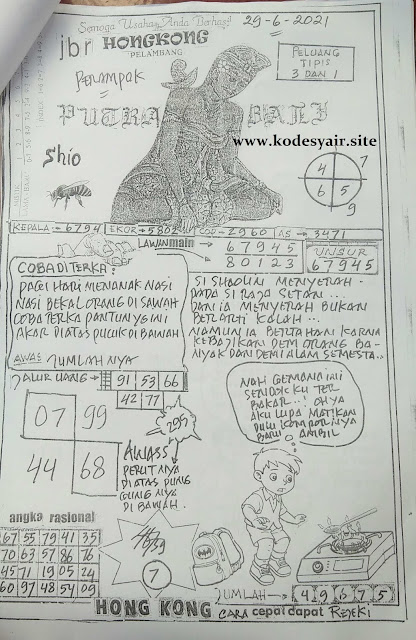 Semoga Usaha Anda Berhasil
29-6-2021
jbr HONGKONG
PELAMBANG
PELUANG
TIPIS
3 DAN 1
Perampok
PUTRA BALI
www.kodesyair.site
Shio
4 7
6 5
9
KEPALA:-6794 EKOR=5802 COP-2960 AS=3471
LAWAN main
6 7 9 4 5
8 0 1 2 3
UNSUR
67945
COBA DITERKA:
PAGI HARI MENANAK NASI
NASI BEKAL ORANG DI SAWAH
COBA TERKA PANTUN YG INI
AKAR DIATAS PUCUK DI BAWAH
AWAS JUMLAH NYA
SI SHAOLIN MENYERAH
PADA SI RAJA SETAN...
DAN IA MENYERAH BUKAN
BERARTI KALAH...
NAMUN IA BERTAHAN KARNA
KEBAJIKAN DEMI ORANG BA-
NYAK DAN DEMI ALAM SEMESTA..
JALUR UANG
91 53 66
42 77
07 99
44 68
295
AWASS
PERUTNYA
DIATAS PUNG
GUNG NYA
DI BAWAH.
NAH GEMANA INI
SENDOK KU TER
BAKAR..! OH YA
AKU LUPA MATIKAN
DULU KOMPORINYA
BARU AMBIL
angka rasional
67 55 79 41 35
70 63 57 86 76
45 71 19 05 24
60 97 48 54 09
7
JUMLAH
4 9 6 7 5
HONG KONG CARA cepat dapat REJEKI